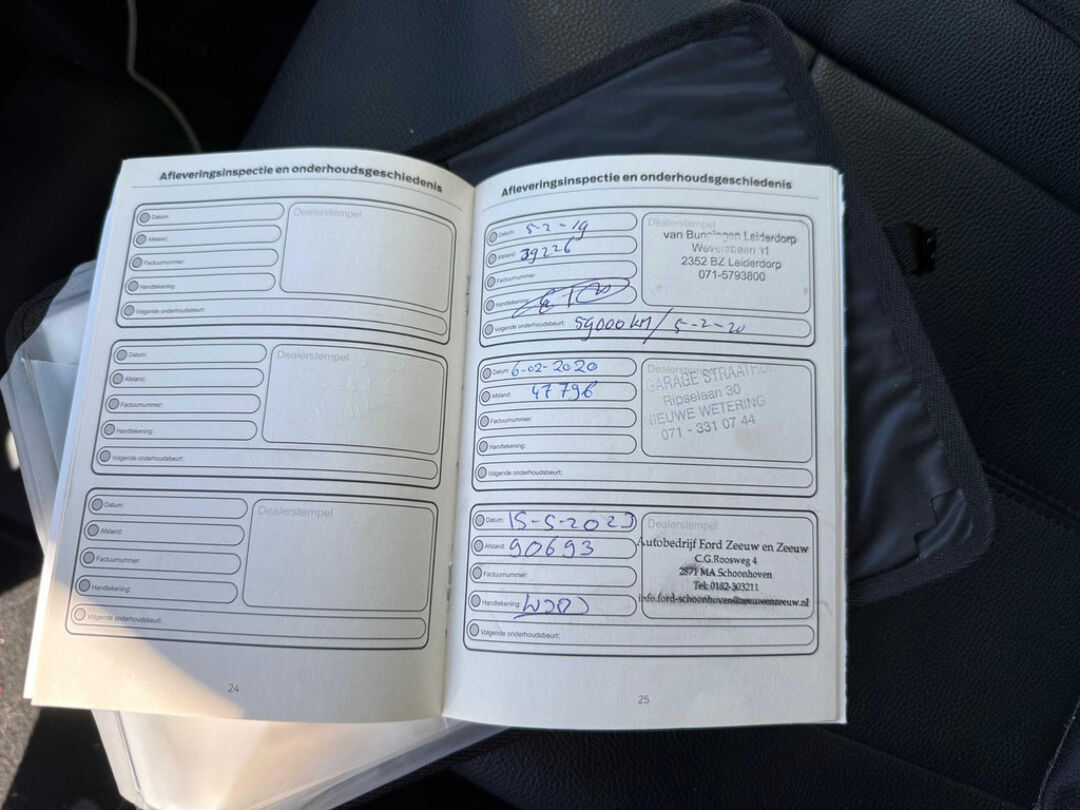 Afleveringsinspectie en onderhoudsgeschiedenis
Datum:
Afstand:
Factuurnummer:
Handtekening:
Volgende onderhoudsbeurt:
Dealerstempel
Datum:
Afstand:
Factuurnummer:
Handtekening:
Volgende onderhoudsbeurt:
Dealerstempel
Datum:
Afstand:
Factuurnummer:
Handtekening:
Volgende onderhoudsbeurt:
Dealerstempel
24
Afleveringsinspectie en onderhoudsgeschiedenis
Datum: 5-2-19
Afstand: 39226
Factuurnummer:
Handtekening:
Volgende onderhoudsbeurt: 59000 km/ 5-2-20
Dealerstempel
van Bunningen Leiderdorp
Weversbaan 11
2352 BZ Leiderdorp
071-5793800
Datum: 6-02-2020
Afstand: 47796
Factuurnummer:
Handtekening:
Volgende onderhoudsbeurt:
Dealerstempel
GARAGE
Ripselaan 30
NIEUWE WETERING
071 - 331 07 44
Datum: 15-5-2023
Afstand: 90693
Factuurnummer:
Handtekening:
Volgende onderhoudsbeurt:
Dealerstempel
Autobedrijf Ford Zeeuw en Zeeuw
C.G.Roosweg 4
2871 MA Schoonhoven
Tel: 0182-303211
info.ford-schoonhoven@zeeuwenzeeuw.nl
25